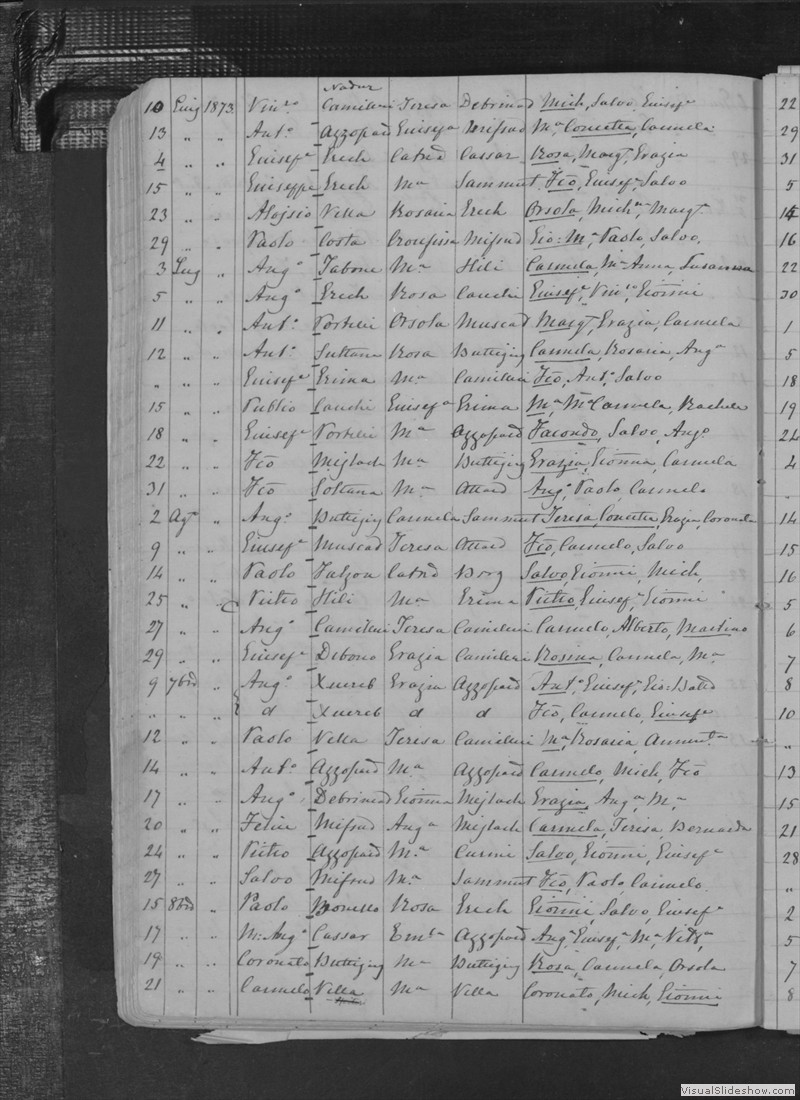 Nadur
10 Giug 1873. Vin.zo Camilleri Teresa Debrincat Mich, Salvo, Giusep.e
13 " " Ant.o Azzopardi Giusep.a Mifsud M.a Concetta, Carmela
4 " " Giusep.e Grech Catn.a Cassar Rosa, Marg.t Grazia
15 " " Giuseppe Grech M.a Sammut Fco, Giusep.e Salvo
23 " " Alojsio Vella Rosaria Grech Orsola, Mich.na, Marg.t
29 " " Paolo Costa Crocifissa Mifsud Gio: M.a Paolo, Salvo,
3 Lug " Ang.o Tabone M.a Hili Carmela, M.a Anna, Susanna
5 " " Ang.o Grech Rosa Cauchi Giusep.e, Vin.zo, Gionni
11 " " Ant.o Portelli Orsola Muscat Marg.t, Grazia, Carmela
12 " " Ant.o Sultana Rosa Buttigieg Carmela, Rosaria, Ang.a
" " " Giusep.e Grima M.a Camilleri Fco, Ant.o, Salvo
15 " " Publio Cauchi Giusep.a Grima M.a, M.a Carmela, Rachele
18 " " Giusep.e Portelli M.a Azzopardi Facondo, Salvo, Ang.o
22 " " Fco Mizlach M.a Buttigieg Grazia, Gionna, Carmela
31 " " Fco Soltana M.a Attard Ang.o, Paolo, Carmelo
2 Ag.to " Ang.o Buttigieg Carmela Sammut Teresa, Concetta, Grazia, Coronata
9 " " Giusep.e Muscat Teresa Attard Fco, Carmelo, Salvo
14 " " Paolo Falzon Catn.a Borg Salvo, Gionni, Mich,
25 " " Pietro Hili M.a Grima Pietro, Giusep.e, Gionni
27 " " Ang.o Camilleri Teresa Camilleri Carmelo, Alberto, Martino
29 " " Giusep.e Debono Grazia Camilleri Rosina, Carmela, M.a
9 7bre " Ang.o Xuereb Grazia Azzopardi Ant.o, Giusep.e, Gio: Batta
" " " d Xuereb d d Fco, Carmelo, Giusep.e
12 " " Paolo Vella Teresa Camilleri M.a, Rosaria, Annunt.a
14 " " Ant.o Azzopardi M.a Azzopardi Carmelo, Mich, Fco
17 " " Ang.o Debrincat Gionna Mizlach Grazia, Ang.a, M.a
20 " " Felice Mifsud Ang.a Mizlach Carmela, Teresa, Bernarda
24 " " Pietro Azzopardi M.a Curmi Salvo, Gionni, Giusep.e
27 " " Salvo Mifsud M.a Sammut Fco, Paolo, Carmelo.
15 8bre " Paolo Rosa Grech Gionni, Salvo, Giusep.e
17 " " M: Ang.o Cassar Azzopardi Ang.a, Giusep.a, M.a
19 " " Coronato Buttigieg M.a Buttigieg Rosa, Carmela, Orsola
21 " " Carmelo Vella M.a Vella Coronato, Mich, Gionni
22
29
31
5
14
16
22
30
1
5
18
19
24
4
"
14
15
16
5
6
7
8
10
"
13
15
21
28
"
2
5
7
8
VisualSlideshow.com